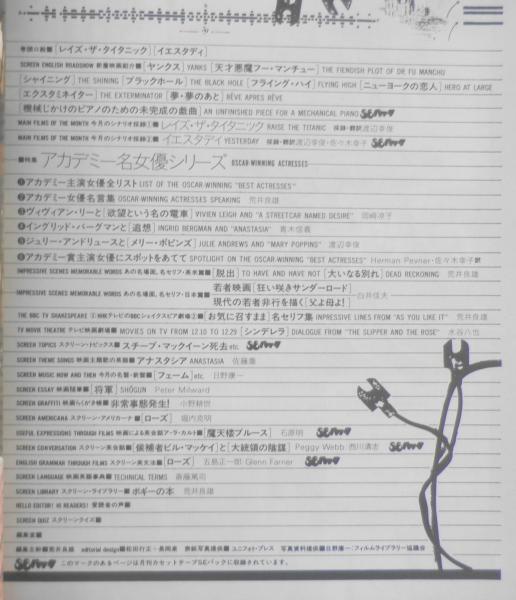 巻頭口絵■[レイズ・ザ・タイタニック][イエスタディ]
SCREEN ENGLISH ROADSHOW 新着映画紹介■[ヤンクス]YANKS[天才悪魔フー・マンチュー]THE FIENDISH PLOT OF DR FU MANCHU
[シャイニング]THE SHINING[ブラックホール]THE BLACK HOLE[フライング・ハイ]FLYING HIGH[ニューヨークの恋人]HERO AT LARGE
[エクスタミネイター]THE EXTERMINATOR[夢・夢のあと]RÊVE APRES RÊVE
[機械じかけのピアノのための未完成の戯曲]AN UNFINISHED PIECE FOR A MECHANICAL PIANO
MAIN FILMS OF THE MONTH 今月のシナリオ採録①■[レイズ・ザ・タイタニック]RAISE THE TITANIC 採録・翻訳渡辺幸俊
MAIN FILMS OF THE MONTH 今月のシナリオ採録②■[イエスタデイ]YESTERDAY 採録・翻訳渡辺幸俊・佐々木幸子
■特集 アカデミー名女優シリーズ OSCAR-WINNING ACTRESSES
❶アカデミー主演女優全リスト LIST OF THE OSCAR-WINNING "BEST ACTRESSES"
❷アカデミー女優名言集 OSCAR-WINNING ACTRESSES SPEAKING 荒井良雄
❸ヴィヴィアン・リーと[欲望という名の電車]VIVIEN LEIGH AND "A STREETCAR NAMED DESIRE" 岡崎凉子
❹イングリッド・バーグマンと[追想]INGRID BERGMAN AND "ANASTASIA" 青木信義
❺ジュリー・アンドリュースと[メリー・ポピンズ]JULIE ANDREWS AND "MARY POPPINS" 渡辺幸俊
❻アカデミー賞主演女優にスポットをあてて SPOTLIGHT ON THE OSCAR-WINNING "BEST ACTRESSES" Herman Pevner・佐々木幸子訳
IMPRESSIVE SCENES MEMORABLE WORDS あの名場面,名セリフ・英米篇■[脱出]TO HAVE AND HAVE NOT[大いなる別れ]DEAD RECKONING 荒井良雄
IMPRESSIVE SCENES MEMORABLE WORDS あの名場面,名セリフ・日本篇■若者映画[狂い咲きサンダーロード]
現代の若者非行を描く[父よ母よ!] 白井佳夫
THE BBC TV SHAKESPEARE ①NHKテレビのBBCシェイクスピア劇場②■[お気に召すまま]名セリフ集 INPRESSIVE LINES FROM "AS YOU LIKE IT" 荒井良雄
TV MOVIE THEATRE テレビ映画劇場■ MOVIES ON TV FROM 12.10 TO 12.29[シンデレラ]DIALOGUE FROM "THE SLIPPER AND THE ROSE" 水谷八也
SCREEN TOPICS スクリーン・トピックス■スチーブ・マックイーン死去etc.
SCREEN THEME SONGS 映画主題歌の英語■アナスタシア ANASTASIA 佐藤
SCREEN MUSIC NOW AND THEN 今月の名盤・新盤■[フェーム]etc. 日野康一
SCREEN ESSAY 映画随筆■[将軍]SHŌGUN Peter Milward
SCREEN GRAFFITI 映画らくがき帳■非常事態発生! 小野耕世
SCREEN AMERICANA スクリーン・アメリカーナ■[ローズ] 堀内克明
USEFUL EXPRESSIONS THROUGH FILMS 映画による英会話ア・ラ・カルト■[魔天楼ブルース] 石原明
SCREEN CONVERSATION スクリーン英会話■[候補者ビル・マッケイ]と[大統領の陰謀]Peggy Webb 西川満志
ENGLISH GRAMMAR THROUGH FILMS スクリーン英文法■[ローズ] 五島正一郎・Glenn Farner
SCREEN LANGUAGE 映画英語事典■TECHNICAL TERMS 斎藤篤司
SCREEN LIBRARY スクリーン・ライブラリー■ボギーの本 荒井良雄
HELLO EDITOR! HI READERS! 愛読者の声■
SCREEN QUIZ スクリーンクイズ■
編集室■
編集主幹■荒井良雄 editorial design■松田行正・長岡 表紙写真提供■ユニフォト・プレス 写真資料提供■日野康一:フィルムライブラリー協議会
このマークのあるページは月刊カセットテープSEパックに収録されています。